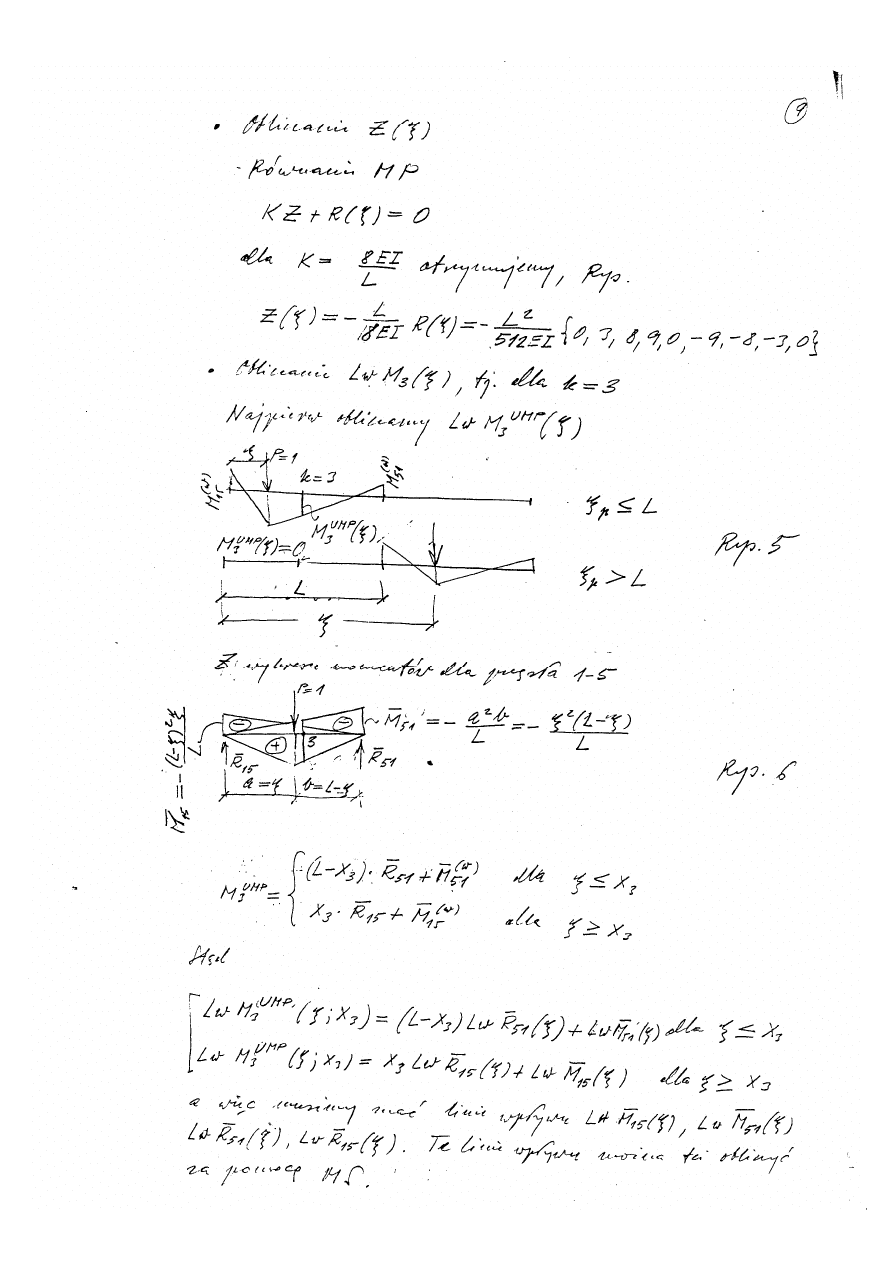 9
• Obliczanie Z(ξ)
- Równanie MP
KZ + R(ξ) = 0
dla K = 8EI/L otrzymujemy, Rys.
Z(ξ) = - L/(8EI) R(ξ) = - L²/(512EI) {0, 3, 8, 9, 0, -9, -8, -3, 0}
• Obliczanie Lw M₃(ξ), tj. dla k = 3
Najpierw obliczamy Lw M₃^UMP(ξ)
ξ P=1
M₁₅^(w) k=3 M₅₁^(w)
M₃^UMP(ξ) ξₚ ≤ L
M₃^UMP(ξ)=0
Rys. 5
ξₚ > L
L
ξ
Z wykresu momentów dla pręta 1-5
P=1
M̄₁₅ = - (L-ξ)²ξ/L
M̄₅₁ = - a²b/L = - ξ²(L-ξ)/L
- + 3 -
R̄₁₅ R̄₅₁
a=ξ b=L-ξ
Rys. 6
M₃^UMP = { (L-X₃)· R̄₅₁ + M̄₅₁^(w) dla ξ ≤ X₃
X₃· R̄₁₅ + M̄₁₅^(w) dla ξ ≥ X₃
Stąd
Lw M₃^UMP (ξ; X₃) = (L-X₃) Lw R̄₅₁(ξ) + Lw M̄₅₁(ξ) dla ξ ≤ X₃
Lw M₃^UMP (ξ; X₃) = X₃ Lw R̄₁₅(ξ) + Lw M̄₁₅(ξ) dla ξ ≥ X₃
a więc musimy znać linie wpływu Lw M̄₁₅(ξ), Lw M̄₅₁(ξ)
Lw R̄₅₁(ξ), Lw R̄₁₅(ξ). Te linie wpływu można też obliczyć
za pomocą MS.